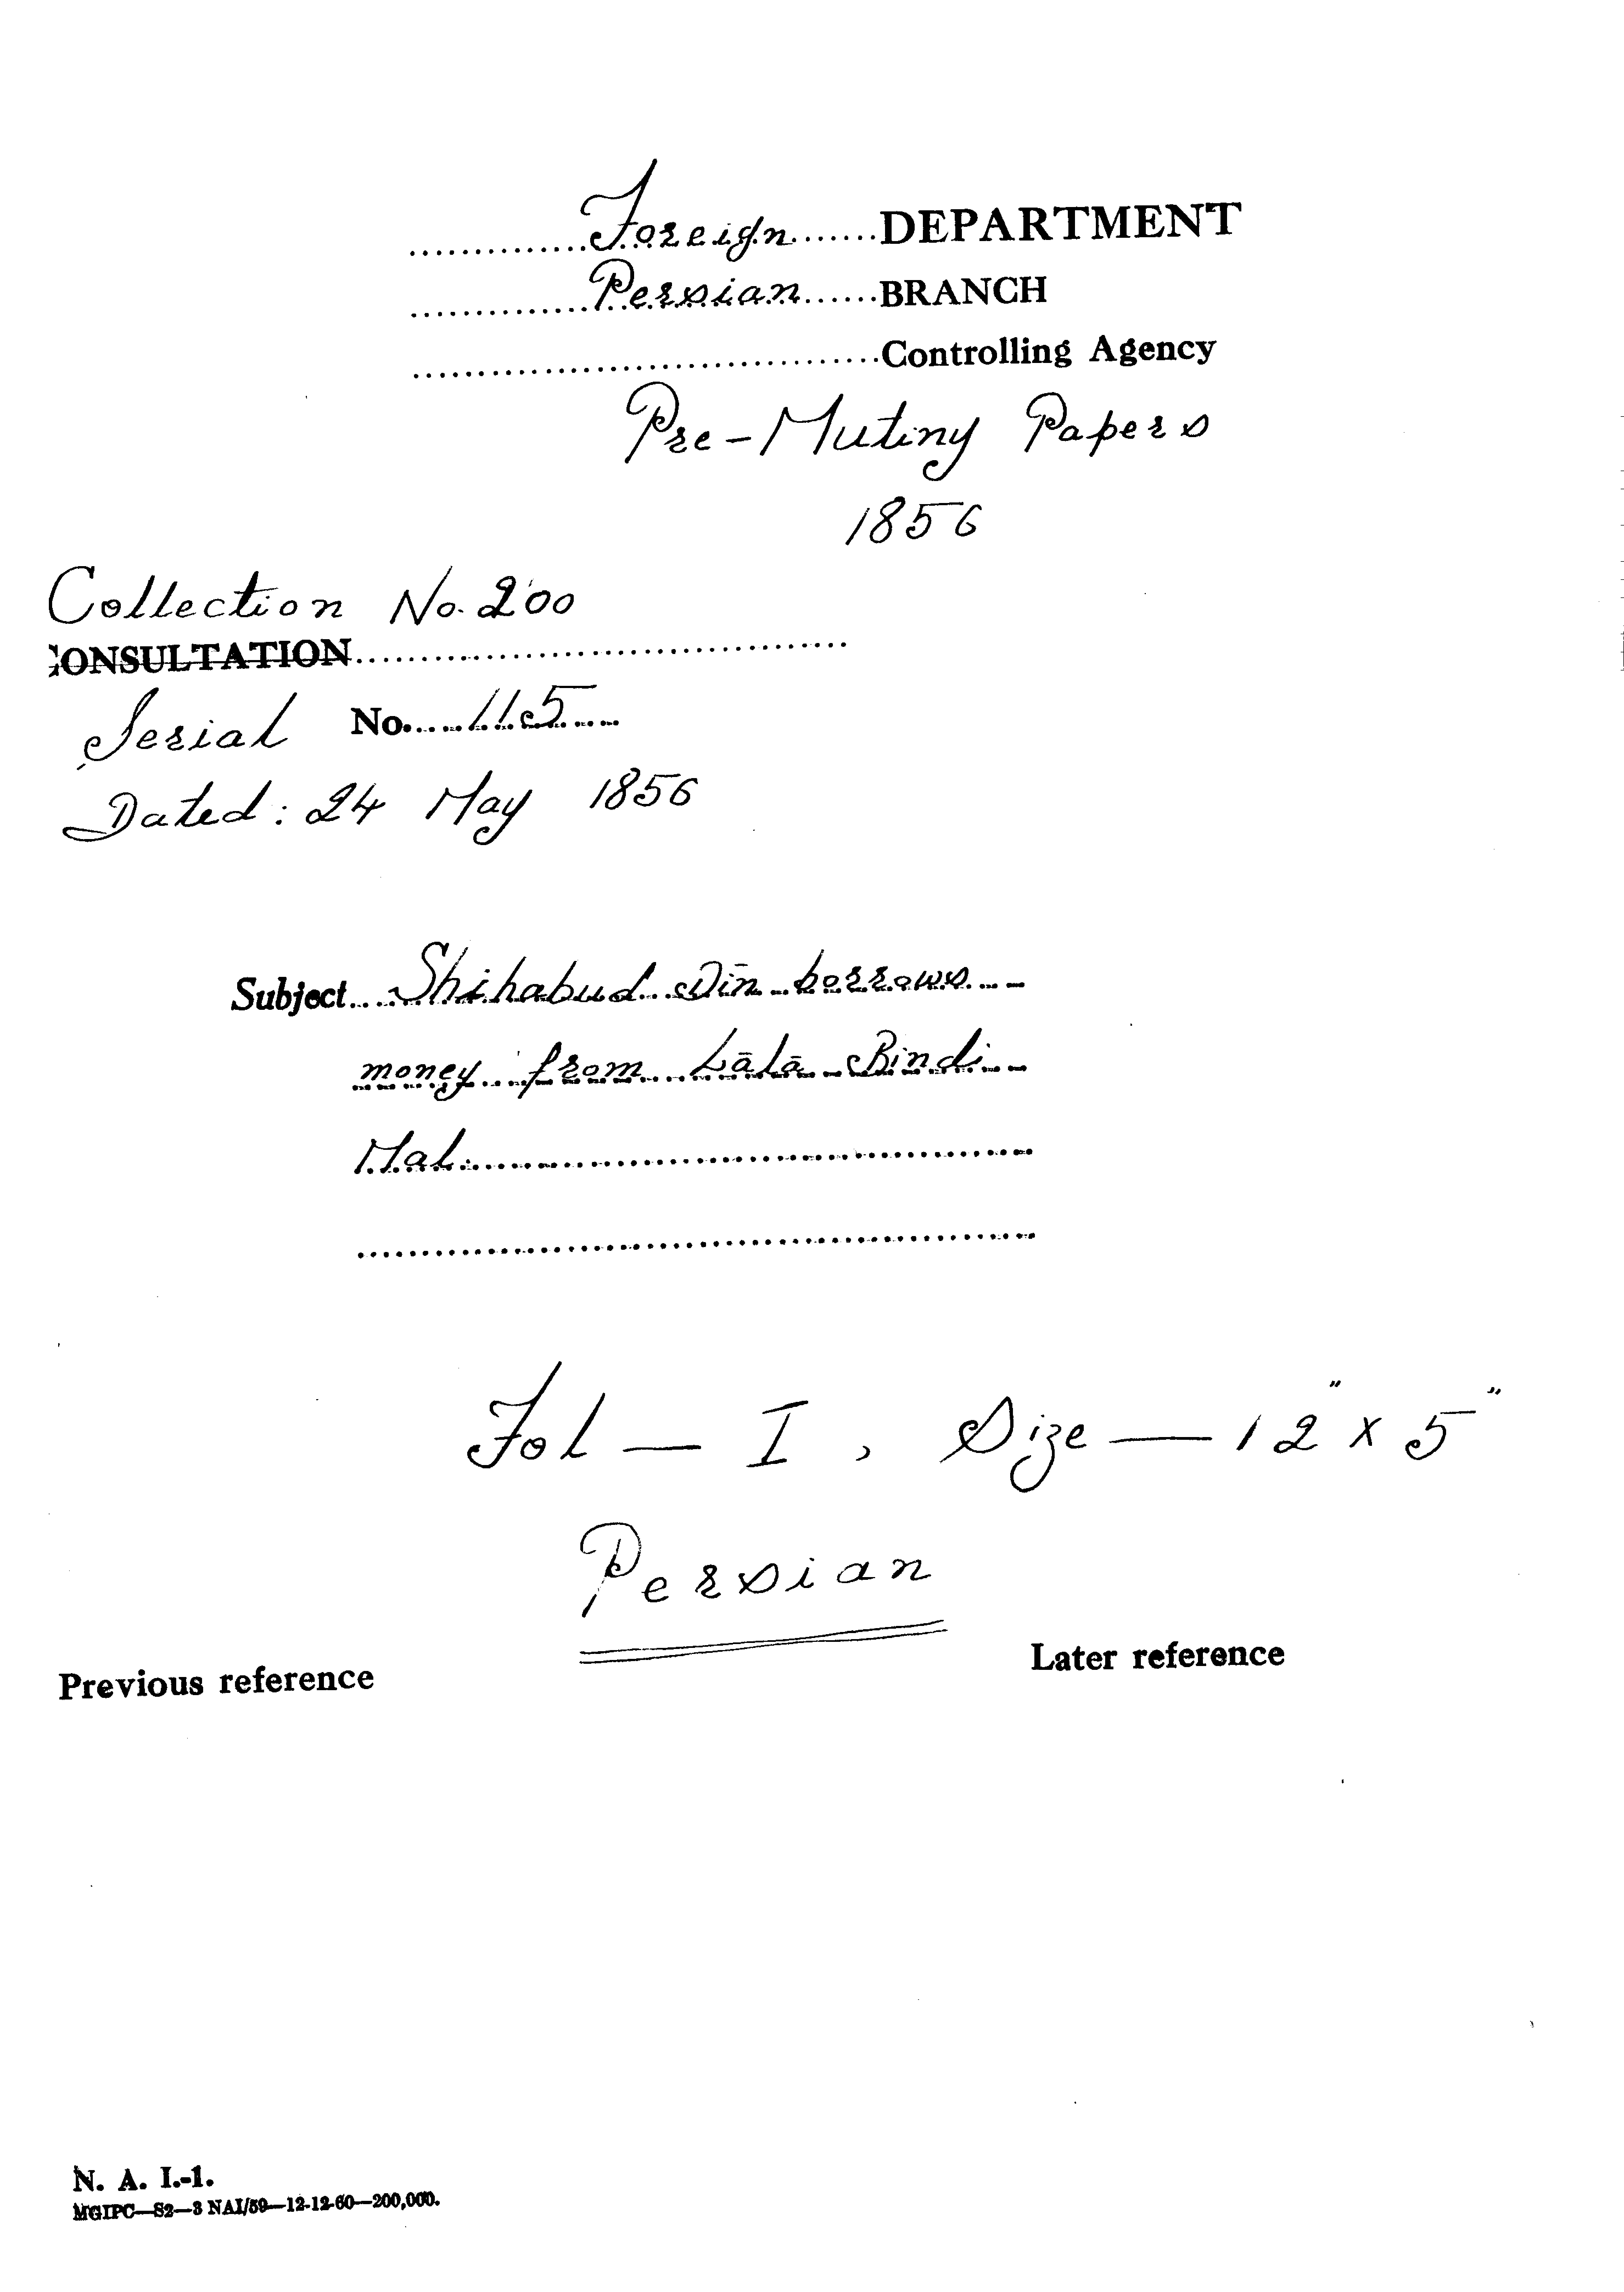 Foreign DEPARTMENT
Persian BRANCH
Controlling Agency
Pre-Mutiny Papers
1856
Collection No. 200
CONSULTATION
Serial No. 115
Dated: 24 May 1856
Subject Shihabud Dīn borrows
money from Lālā Bindi
Mal.
Fol — I, Size — 12" x 5"
Persian
Previous reference Later reference
N. A. I.-1.
MGIPC—S2—3 NAI/59—12-12-60—200,000.